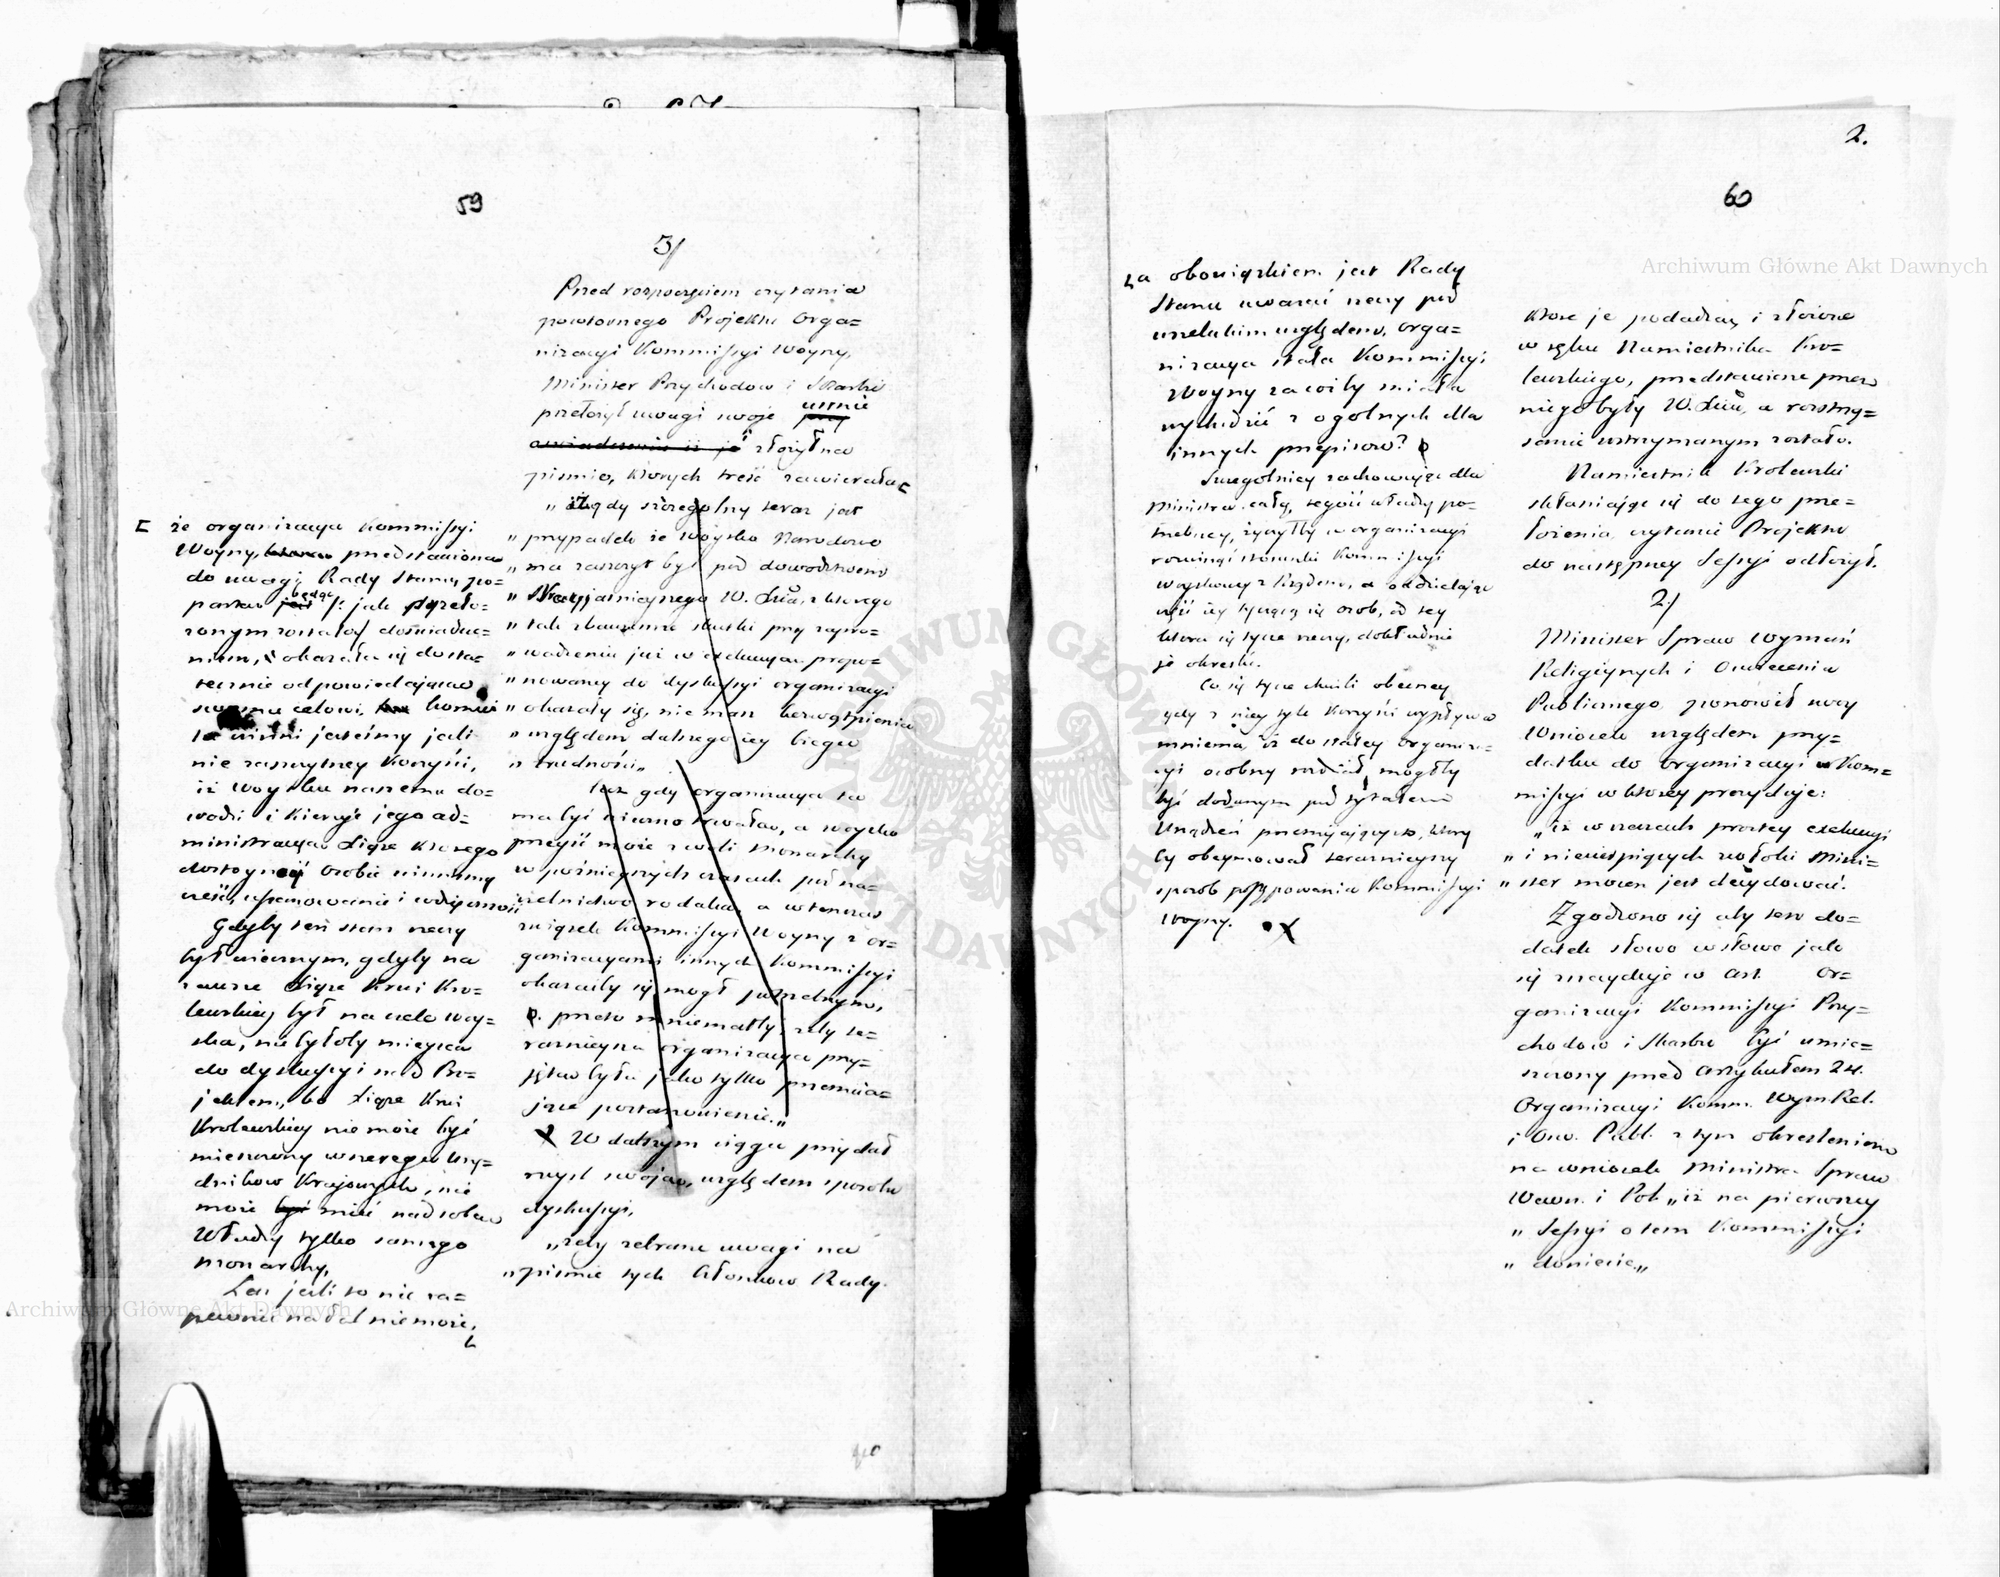 59
3/
Przed rozpoczęciem czytania
powtornego Projektu Orga=
nizacyi Kommissyi Woyny,
Minister Przychodow i Skarbu
przełożył uwagi swoje ustnie
i złożył na
piśmie, ktorych treść zawierała
„ iż gdy szczegolny teraz jest
„ przypadek że Woysko Narodowe
„ ma zaszczyt być pod dowodztwem
„ Nayjaśnieyszego W. Xcia, z ktorego
„ tak zbawienne skutki przy zapro=
„ wadzeniu już w exekucyą propo=
„ nowaney do dyskussyi organizacyi
„ okazały się, nie masz bezwątpienia
„ względem dalszego iey biegu
„ trudności„
Lecz gdy organizacya ta
ma być wieczno trwałą, a woysko
przeyść może z woli Monarchy
w poźnieyszych czasach pod na=
czelnictwo rodaka, a wtenczas
związek Kommissyi Woyny z or=
ganizacyami innych Kommissyi
okazaćby się mogł potrzebnym,
przeto mniemałby, żeby te=
raznieysza organizacya przy=
jęta była jako tylko przemija=
jące postanowienie.„
X W dalszym ciągu przydał
myśl swoją, względem sposobu
dyskussyi,
„żeby zebrane uwagi na
„piśmie tych Członkow Rady.
[ że organizacya Kommissyi
Woyny, przedstawiona
do uwagi Rady Stanu, po=
parta będąc /: jak przeło=
żonym zostało :/ doświadcze=
niem, okazała się dosta=
tecznie odpowiedającą
swemu celowi, komuż
to winni jesteśmy jeśli
nie zaszczytney korzyści,
iż Woysku naszemu do=
wodzi i kieruje jego ad=
ministracyą Xiąże ktorego
dostoyney osobie winniśmy
cześć, uszanowanie i wdzięczność
Gdyby ten stan rzeczy
był wiecznym, gdyby na
zawsze Xiąże Krwi Kro=
lewskiey był na czele woy=
ska, nie byłoby mieysca
do dyskussyi nad Pro=
jektem, bo Xiąże Krwi
Krolewskiey nie może być
mieszczony w szeregu Urzę=
dnikow Kraiowych, nie
może mieć nad sobą
Władzy tylko samego
monarchy,
Lecz jeśli to nie za=
pewnie na dal nie może,
2.
60
za obowiązkiem jest Rady
Stanu uważać rzeczy pod
wszelakim względem, orga=
nizacya stała Kommissyi
Woyny zaczęby miała
wychodzić z ogolnych dla
innych przepisow?
Szczegolniey zachowując dla
Ministra całą tęgość władzy po=
trzebney, życzyłby w organizacyi
rozwinąć stosunki Kommissyi
woyskowey z Rządem, a oddzielając
część iey tyczącą się osob, od tey
ktora się tycze rzeczy, dokładnie
je określić.
Co się tycze chwili obecney
gdy z niey tyle korzyści wypływa
mniema iż do stałey organiza=
cyi osobny rozdział mogłby
być dodanym pod tytułem
Urządzeń przemijających, ktory
by obeymował teraznieyszy
sposob postępowania Kommissyi
Woyny. X
ktore je podadzą, i złożone
w ręku Namiestnika Kro=
lewskiego, przedstawione przez
niego były W. Xciu, a rozstrzy=
gnienie wstrzymanym zostało.
Namiestnik Krolewski
skłaniając się do tego prze=
łożenia czytanie Projektu
do następney Sessyi odłożył.
2/
Minister Spraw Wyznań
Religiynych i Oświecenia
Publicznego, ponowił swoy
Wniosek względem przy=
datku do Organizacyi Kom=
missyi w ktorey prezyduje:
„ iż w rzeczach prostey exekucyi
„ i niecierpiących zwłoki Mini=
„ ster mocen jest decydować.
Zgodzono się aby ten do=
datek słowo w słowo jak
się znayduje w Art. Or=
ganizacyi Kommissyi Przy=
chodow i Skarbu był umie=
szczony przed Artykułem 24.
Organizacyi Komm. Wyzn Rel.
i Ośw. Publ. z tym określeniem
na wniosek Ministra Spraw
Wewn. i Pol. „iż na pierwszey
„ Sessyi o tem Kommissyi
„ doniesie„
Archiwum Główne Akt Dawnych
Archiwum Główne Akt Dawnych
ARCHIWUM GŁÓWNE AKT DAWNYCH